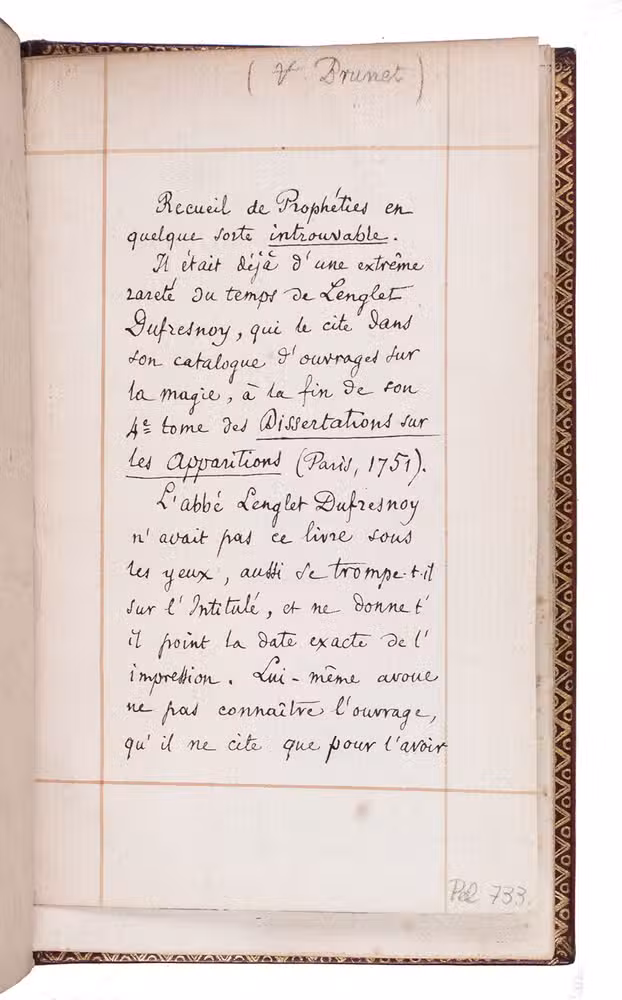 (Vr Brunet)
Recueil de Prophéties en
quelque sorte introuvable.
Il était déjà d'une extrême
rareté du temps de Lenglet
Dufresnoy, qui le cite dans
son catalogue d'ouvrages sur
la magie, à la fin de son
4e tome des Dissertations sur
les Apparitions (Paris, 1751).
L'abbé Lenglet Dufresnoy
n'avait pas ce livre sous
les yeux, aussi se trompe-t-il
sur l'Intitulé, et ne donne t'
il point la date exacte de l'
impression. Lui-même avoue
ne pas connaître l'ouvrage,
qu'il ne cite que pour l'avoir
733.